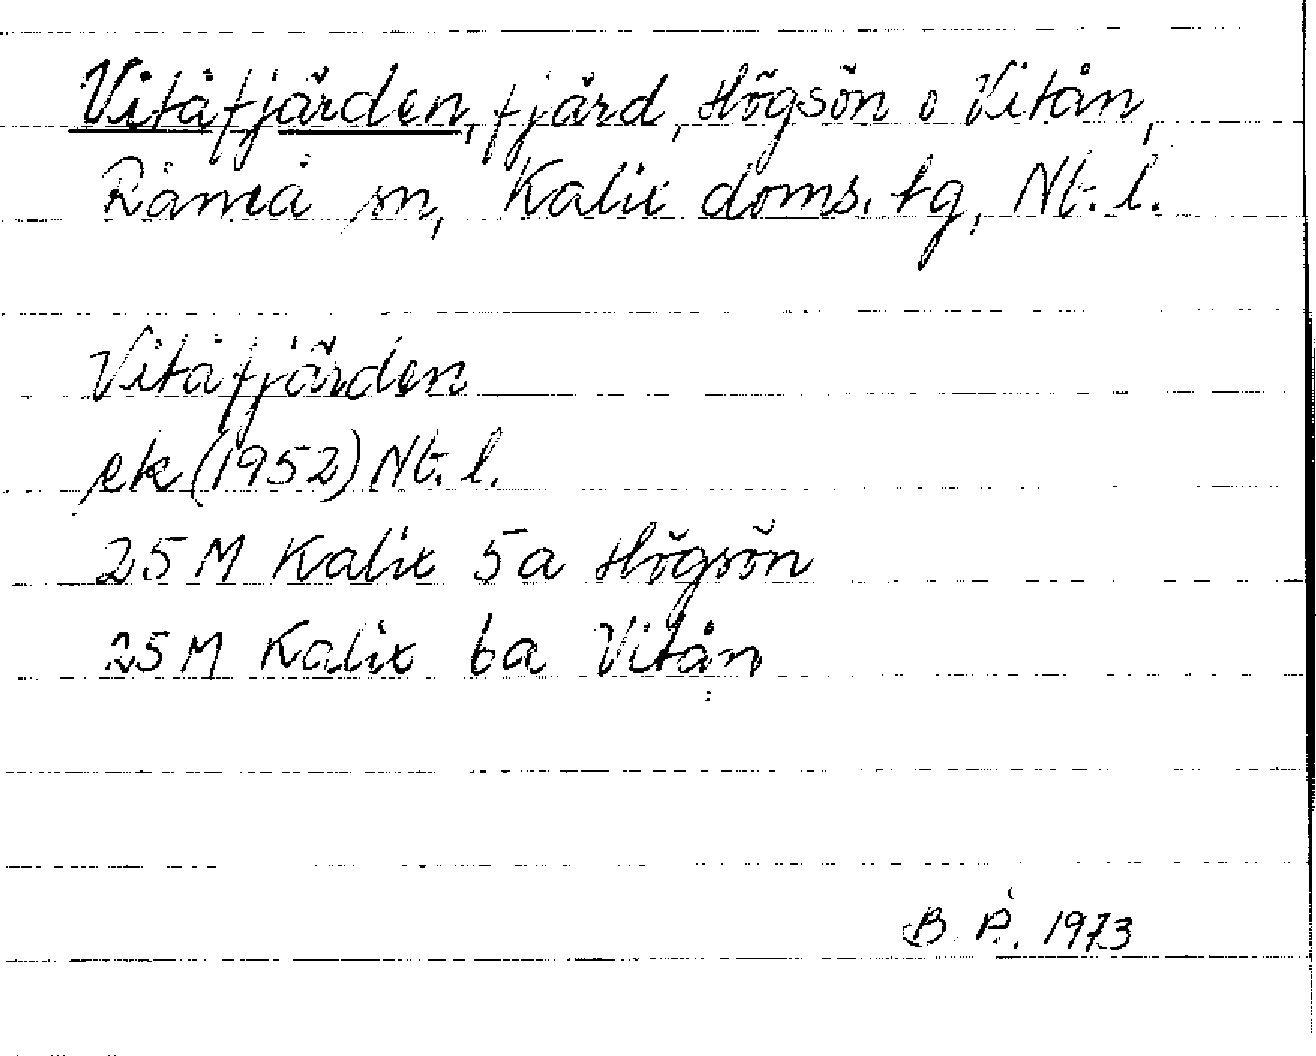 Vitåfjärden, fjärd, Högsön o Vitån,
Råneå sn, Kalix doms. tg, Nb. l.
Vitåfjärden
ek (1952) Nb. l.
25 M Kalix 5a Högsön
25 M Kalix 6a Vitån
B. Å. 1973